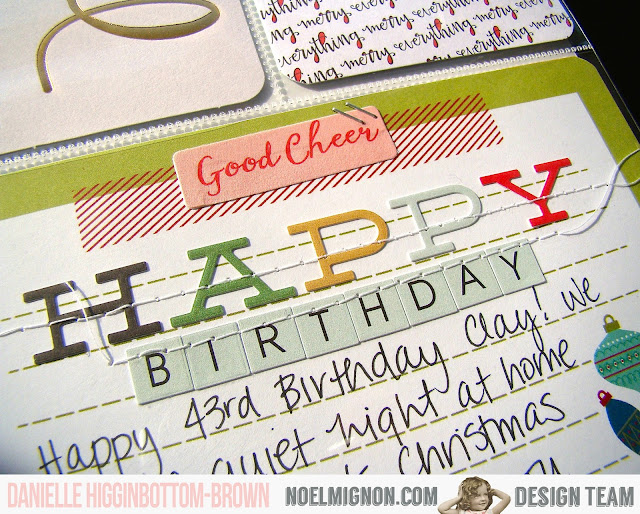 everything. merry. everything. merry
everything. merry. everything. merry. everything
everything. merry. everything. merry. everything. merry
Good Cheer
HAPPY
BIRTHDAY
Happy 43rd Birthday Clay! We
quiet night at home
Christmas
DANIELLE HIGGINBOTTOM-BROWN NOELMIGNON.COM DESIGN TEAM